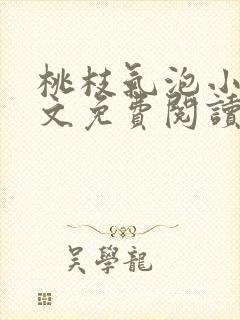 桃枝氣泡小
文免費閱讀
吳學龍